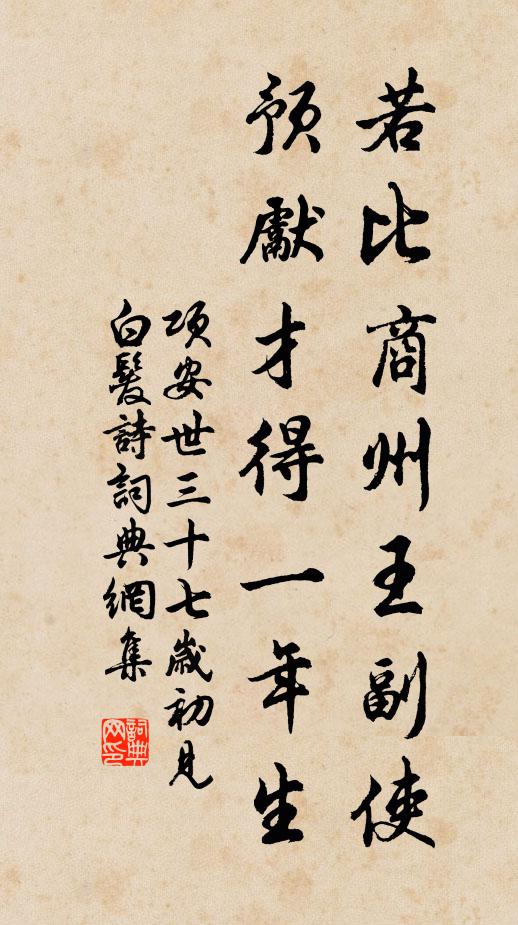 若比商州王副使
預獻才得一年生
項安世三十七歲初見
白髮詩詞典網集
詞典網印